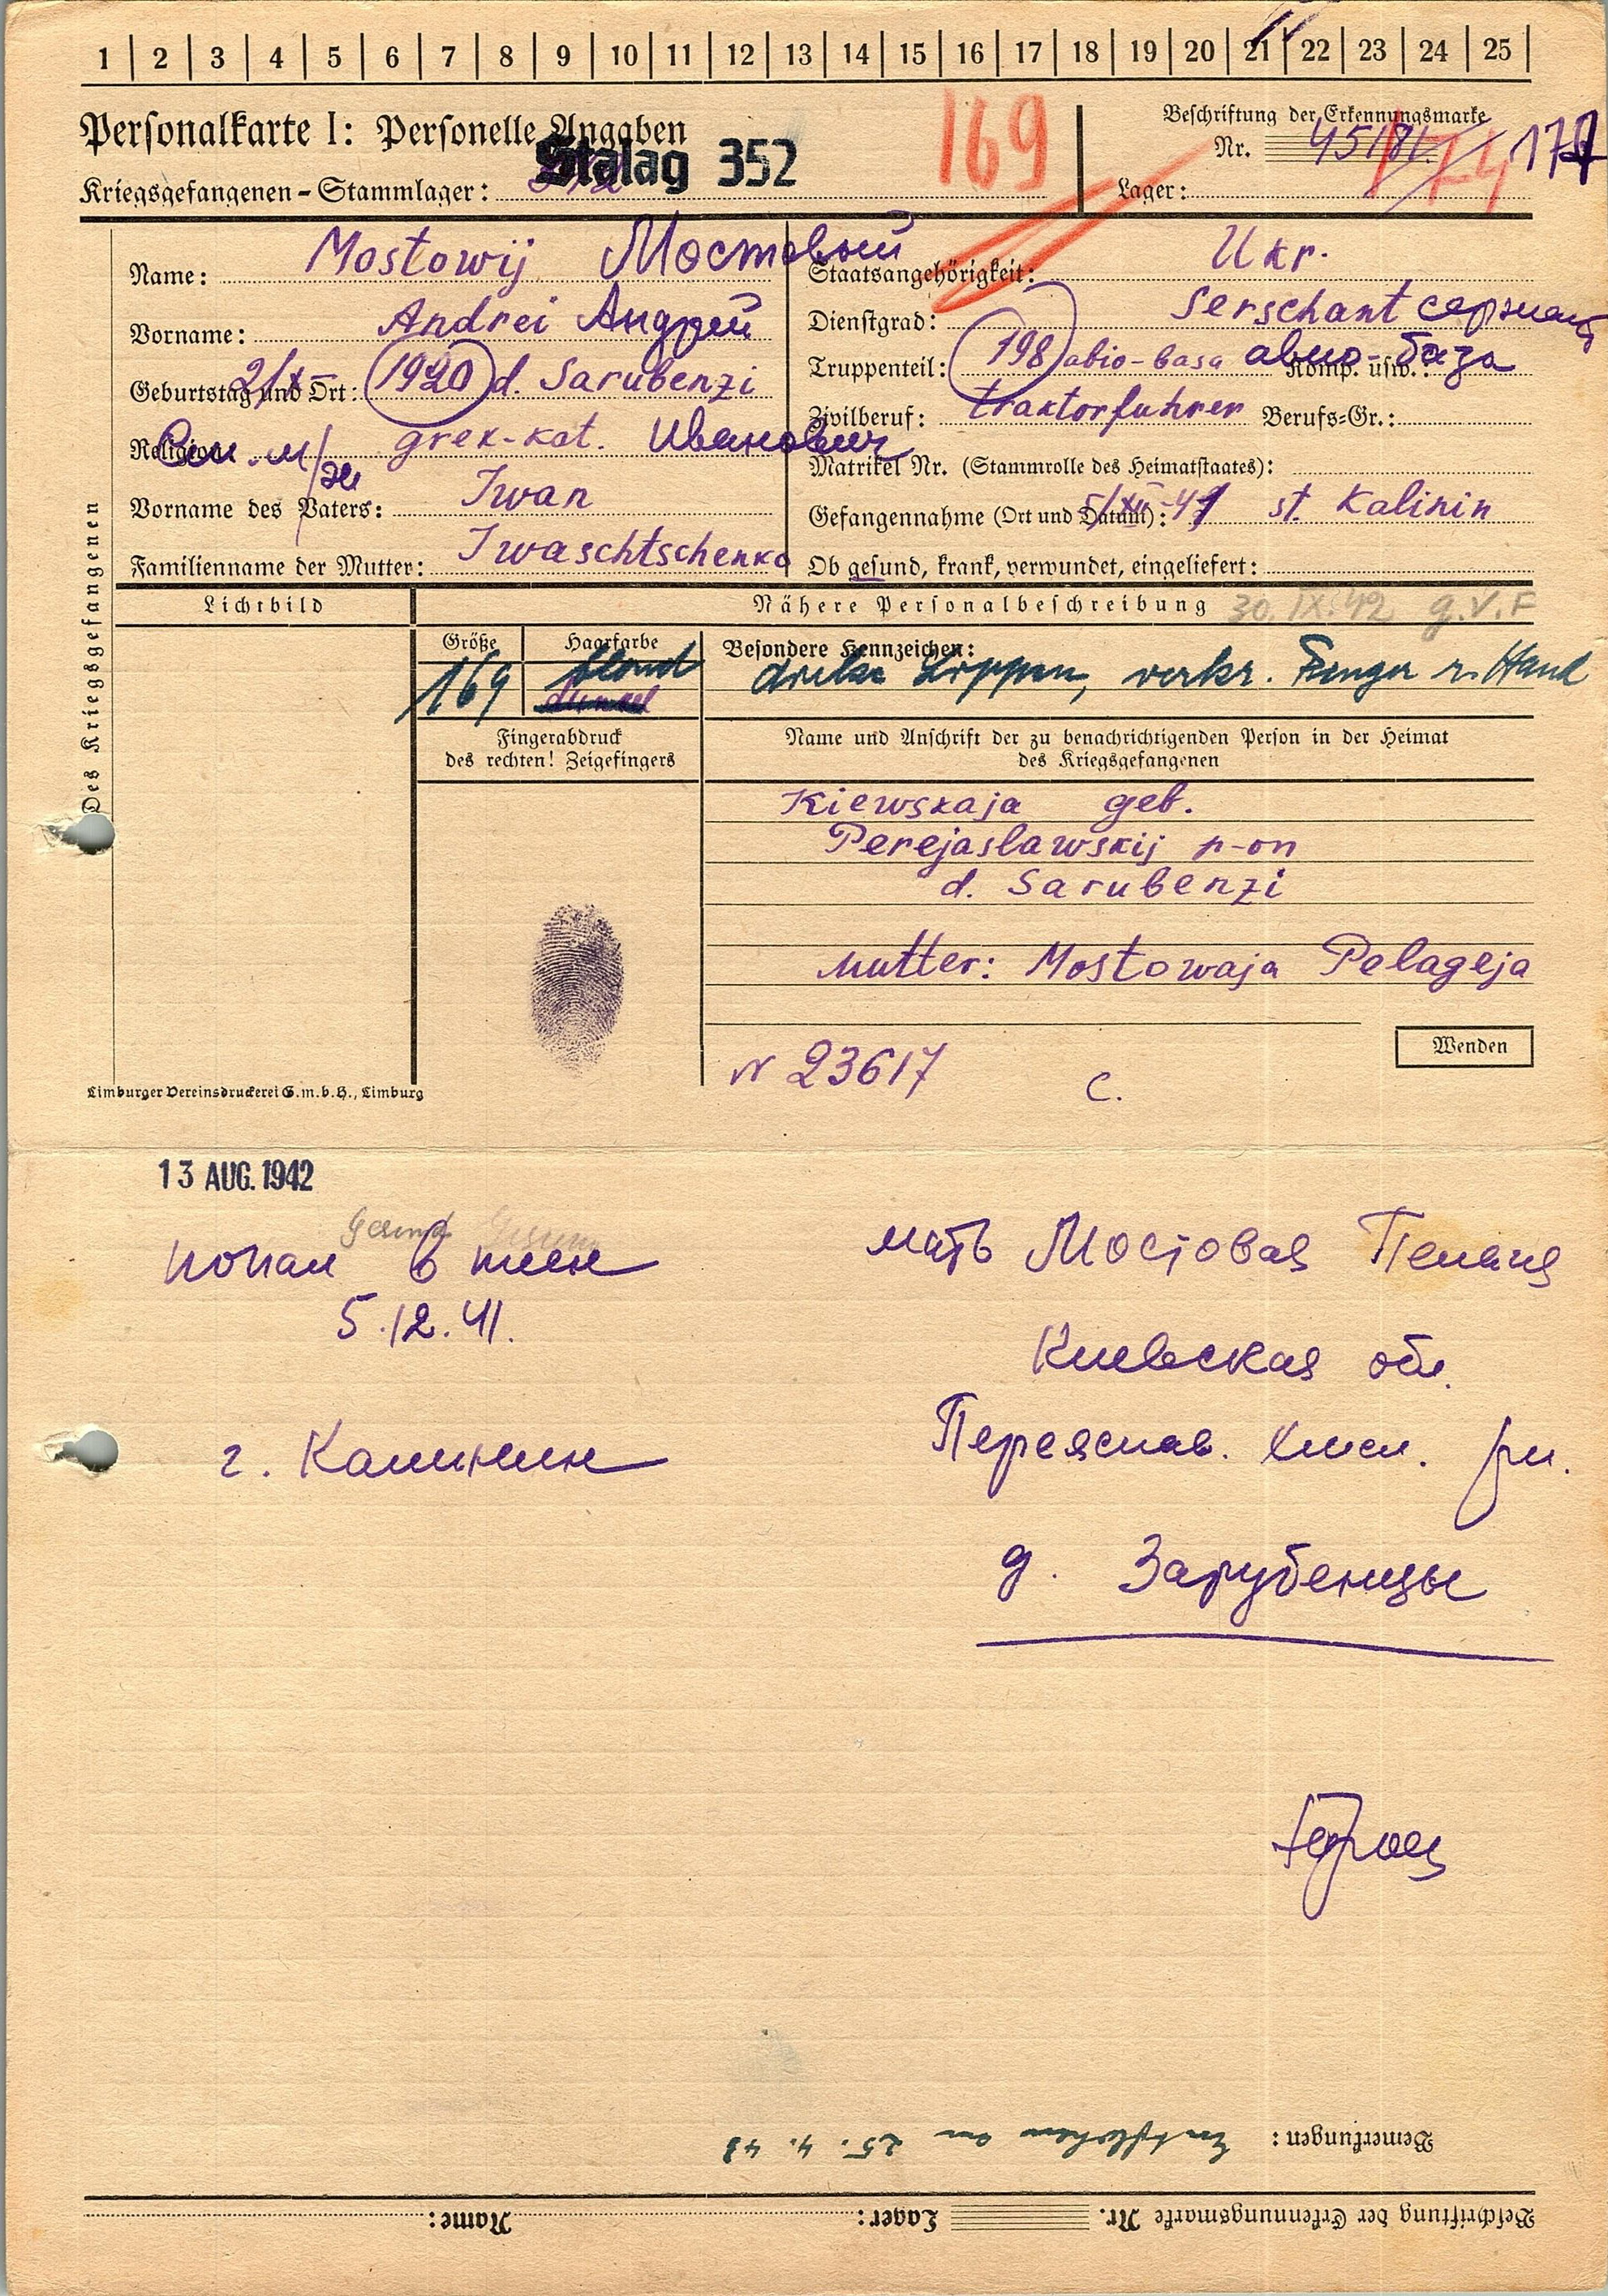 1 | 2 | 3 | 4 | 5 | 6 | 7 | 8 | 9 | 10 | 11 | 12 | 13 | 14 | 15 | 16 | 17 | 18 | 19 | 20 | 21 | 22 | 23 | 24 | 25
Personalkarte I: Personelle Angaben
Kriegsgefangenen-Stammlager: Stalag 352
169
Beschriftung der Erkennungsmarke
Nr. 45181
174
Lager:
Des Kriegsgefangenen
Name: Mostowij Мостовый
Vorname: Andrei Андрей
Geburtstag und Ort: 1920 d. Sarubenzi
Religion: grek-kat. Иванович
Vorname des Vaters: Iwan
Familienname der Mutter: Iwaschtschenko
Staatsangehörigkeit: Ukr.
Dienstgrad: Serschant сержант
Truppenteil: 198 abio-basa авио-база Komp. usw.:
Zivilberuf: traktorfuhrer Berufs-Gr.:
Matrikel Nr. (Stammrolle des Heimatstaates):
Gefangennahme (Ort und Datum): 5/XII-41 st. Kalinin
Ob gesund, krank, verwundet, eingeliefert:
Lichtbild
Nähere Personalbeschreibung 30.IX.42 g.V.F
Größe
169
Haarfarbe
blond
dunkel
Besondere Kennzeichen:
dicke Lippen, verkr. Finger r. Hand
Fingerabdruck
des rechten! Zeigefingers
Name und Anschrift der zu benachrichtigenden Person in der Heimat
des Kriegsgefangenen
Kiewskaja geb.
Perejaslawskij r-on
d. Sarubenzi
Mutter: Mostowaja Pelageja
Wenden
N 23617 C.
Limburger Vereinsdruckerei G.m.b.H., Limburg
13 AUG. 1942
попал в плен
5.12.41.
г. Калинин
мать Мостовая Пелагия
Киевская обл.
Переяслав. Хмел. рн.
д. Зарубенцы
Bemerkungen: Entflohen am 25.4.43
Beschriftung der Erkennungsmarke Nr. Lager: Name: